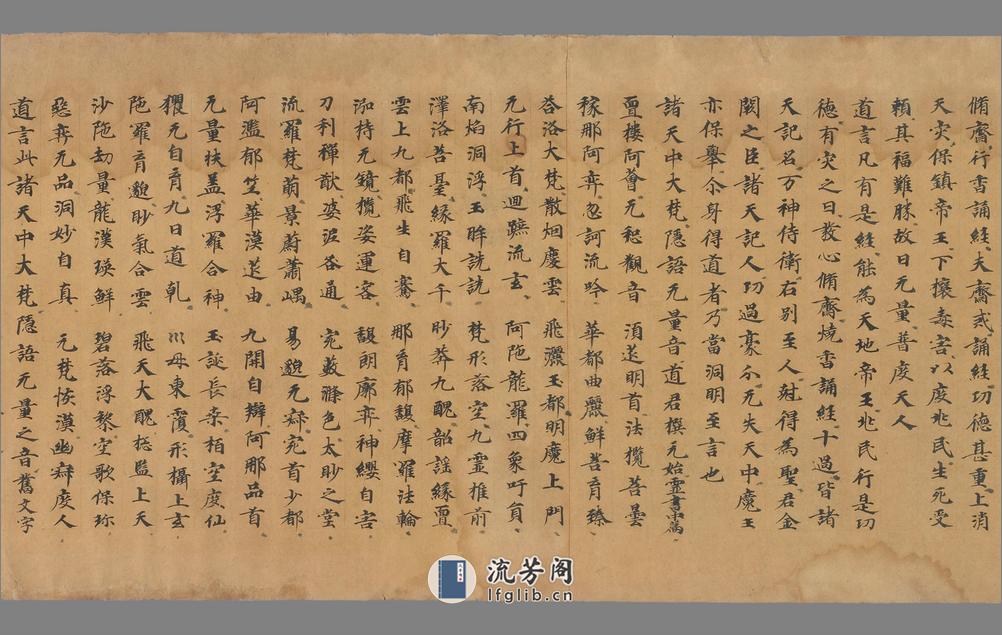 脩齋行香誦經夫齋或誦經功德甚重上消
天灾保鎮帝王下攘毒害以度兆民生死受
賴其福難勝故曰元量普度天人
道言凡有是經能為天地帝王兆民行是功
德有灾之日發心脩齋燒香誦經十過皆諸
天記名万神侍衛右別至人尅得為聖君金
闕之臣諸天記人功過豪分无失天中魔王
亦保舉尒身得道者乃當洞明至言也
諸天中大梵隱語元量音道君撰元始靈書中篇
亶樓阿薈 元惒觀音 湏延明首 法攬菩曇
稼那阿弈 忽訶流吟 華都曲麗 鮮菩育臻
荅洛大梵 散烟慶雲 飛灑玉都 明魔上門
元行上首 迴蹠流玄 阿陁龍羅 四象吁貟
南焰洞浮 玉眸詵詵 梵形落空 九靈推前
澤洛菩臺 緣羅大千 眇莽九醜 韶謡緣亶
雲上九都 飛生自騫 那育郁馥 摩羅法輪
泇持元鏡 攬姿運容 馥朗廓弈 神纓自宮
刀利禪猷 婆泥咎通 宛藪滌色 太眇之堂
流羅梵萠 景蔚蕭嵎 易邈元寂 宛首少都
阿濫郁竺 華漠莚由 九開自辯 阿那品首
元量扶盖 浮羅合神 玉誕長桒 栢空度仙
玃元自育 九日道乹 㘨母東霞 形攝上玄
陁羅育邈 眇氣合雲 飛天大醜 揔監上天
沙陁劫量 龍漢瑛鮮 碧落浮黎 空歌保珎
惡弈元品 洞妙自真 元梵恢漠 幽寂度人
道言此諸天中大梵隱語元量之音舊文字
流芳阁
lfglib.cn